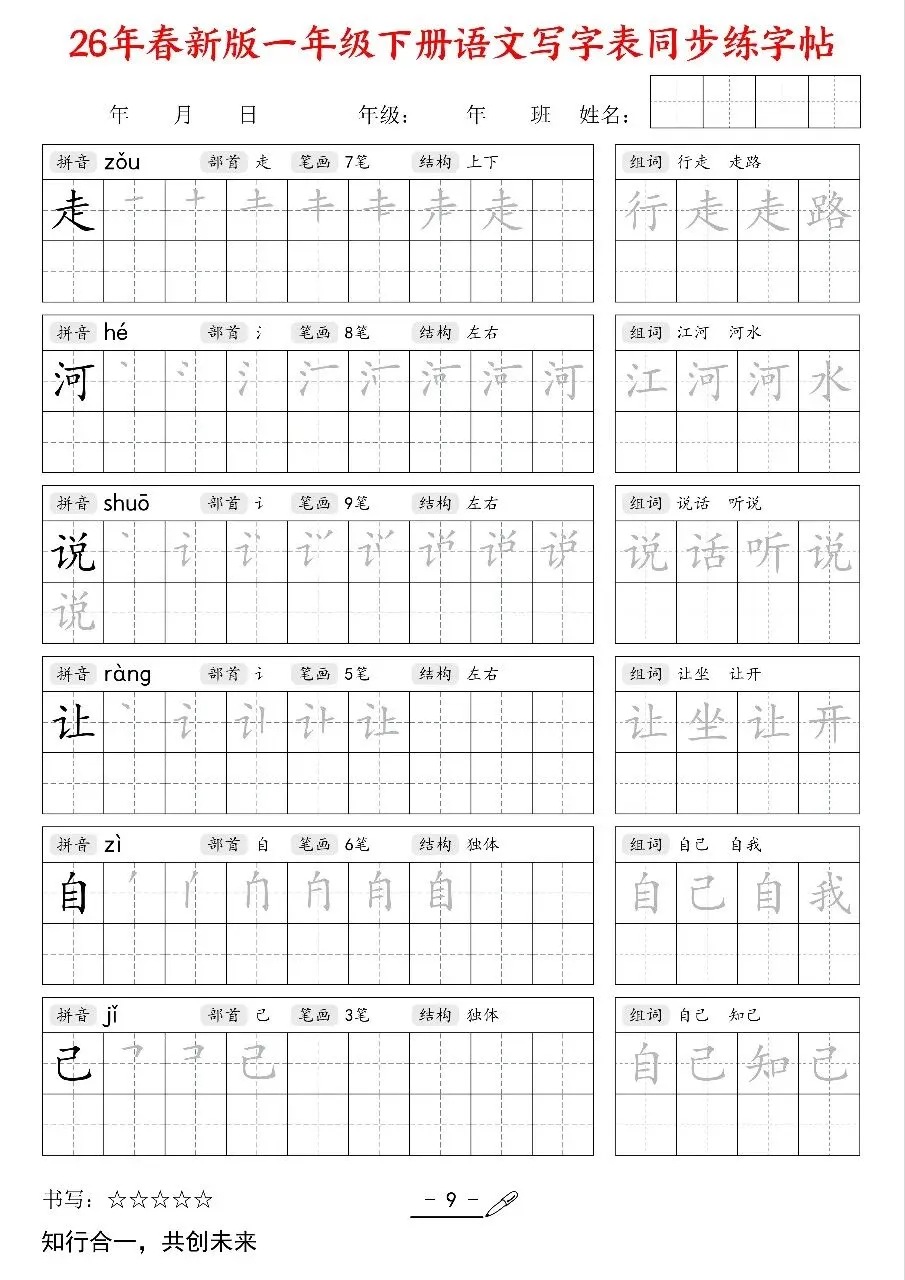 26年春新版一年级下册语文写字表同步练字帖
年 月 日 年级： 年 班 姓名：
拼音 zǒu 部首 走 笔画 7笔 结构 上下 组词 行走 走路
走 走 行走走路
拼音 hé 部首 氵 笔画 8笔 结构 左右 组词 江河 河水
河 河 江河河水
拼音 shuō 部首 讠 笔画 9笔 结构 左右 组词 说话 听说
说 说话听说
说
拼音 ràng 部首 讠 笔画 5笔 结构 左右 组词 让坐 让开
让 让 让坐让开
拼音 zì 部首 自 笔画 6笔 结构 独体 组词 自己 自我
自 自 自己自我
拼音 jǐ 部首 己 笔画 3笔 结构 独体 组词 自己 知己
己 己 自己知己
书写：☆☆☆☆☆ - 9 -
知行合一，共创未来